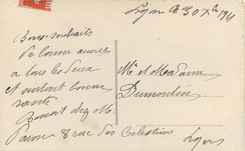 Lyon le 30 Xbre 191
Bons souhaits
de bonne année
à tous les deux
et surtout bonne
santé
Benoit chez Mr
8 rue des Célestins
Lyon
Mr et Madame
Dumoulin